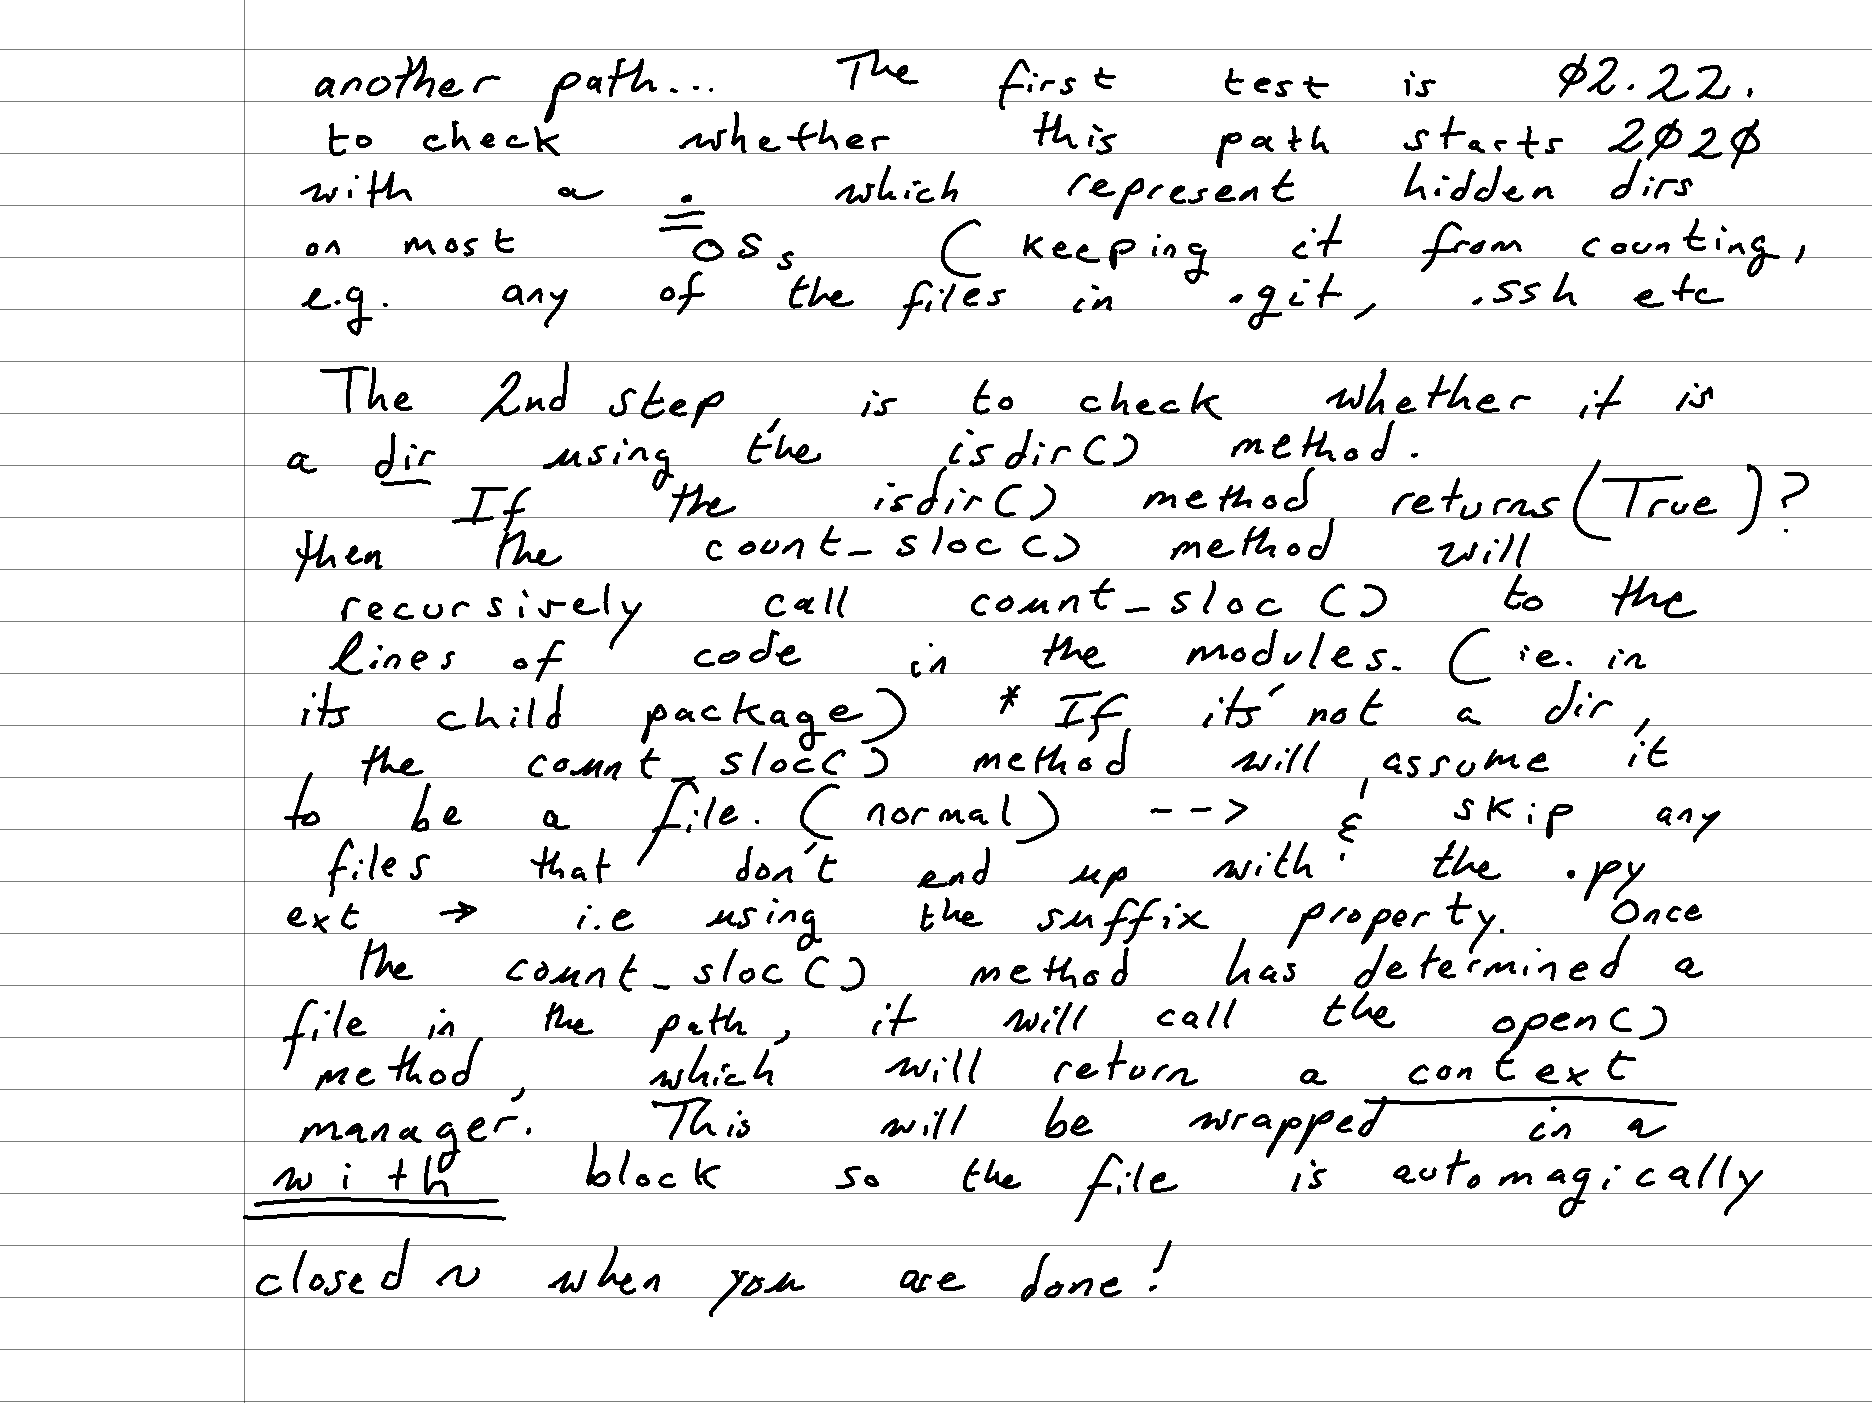 another path... The first test is 02.22.
to check whether this path starts 2020
with a . which represent hidden dirs
on most OSs (keeping it from counting,
e.g. any of the files in .git, .ssh etc
The 2nd step, is to check whether it is
a dir using the isdir() method.
If the isdir() method returns (True)?
then the count_sloc() method will
recursively call count_sloc() to the
lines of code in the modules. (ie. in
its child package) * If it's not a dir,
the count_sloc() method will assume it
to be a file. (normal) --> & skip any
files that don't end up with the .py
ext → i.e using the suffix property. Once
the count_sloc() method has determined a
file in the path, it will call the open()
method, which will return a context
manager. This will be wrapped in a
with block so the file is automagically
closed ~ when you are done!